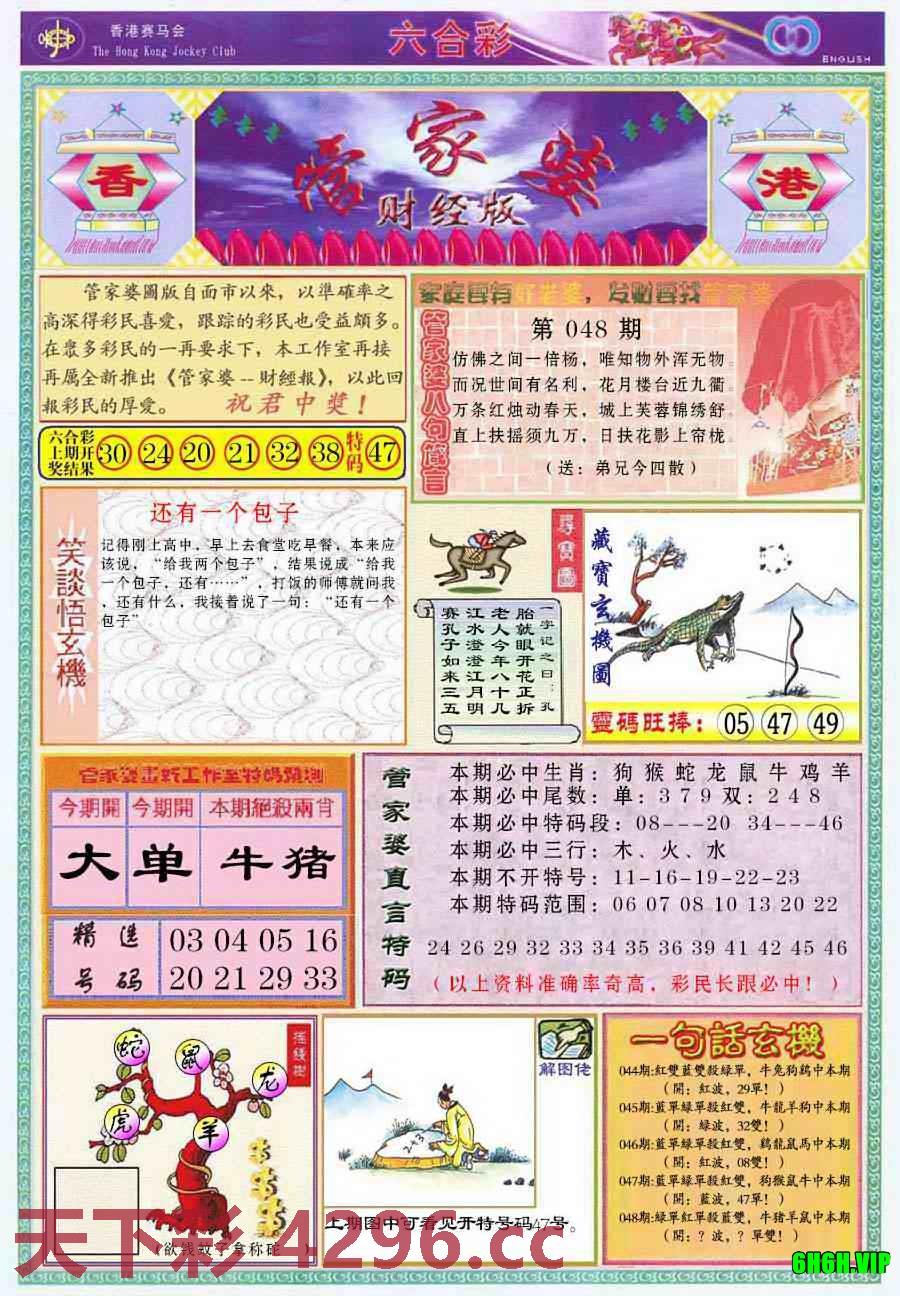 香港赛马会
The Hong Kong Jockey Club
六合彩
ENGLISH
香
管家婆
财经版
港
管家婆圖版自面市以來，以準確率之
高深得彩民喜愛，跟踪的彩民也受益頗多。
在衆多彩民的一再要求下，本工作室再接
再厲全新推出《管家婆--財經報》，以此回
報彩民的厚愛。 祝君中獎！
六合彩
上期开
奖结果
30 24 20 21 32 38 特码 47
家庭要有好老婆，发财要找管家婆
管家婆八句箴言
第 048 期
仿佛之间一倍杨，唯知物外浑无物。
而况世间有名利，花月楼台近九衢。
万条红烛动春天，城上芙蓉锦绣舒。
直上扶摇须九万，日扶花影上帘栊。
（送：弟兄今四散）
笑談悟玄機
还有一个包子
记得刚上高中，早上去食堂吃早餐，本来应
该说，“给我两个包子”，结果说成“给我
一个包子，还有……”，打饭的师傅就问我
，还有什么，我接着说了一句：“还有一个
包子”
尋寶圖
一字记之曰：孔
胎就眼开花正拆
老人今年八十几
江水澄澄江月明
赛孔子如来三五
藏寶玄機圖
靈碼旺捧： 05 47 49
管家婆畫新工作室特碼預測
今期開 今期開 本期絕殺兩肖
大 单 牛猪
精选
号码
03 04 05 16
20 21 29 33
管家婆直言特码
本期必中生肖：狗 猴 蛇 龙 鼠 牛 鸡 羊
本期必中尾数：单：3 7 9 双：2 4 8
本期必中特码段：08---20 34---46
本期必中三行：木、火、水
本期不开特号：11-16-19-22-23
本期特码范围：06 07 08 10 13 20 22
24 26 29 32 33 34 35 36 39 41 42 45 46
（以上资料准确率奇高，彩民长跟必中！）
摇錢樹
蛇
鼠
龙
虎
羊
（欲钱数子拿称砣）
解图佬
243
上期图中可看见开特号码47号。
一句話玄機
044期:紅雙藍雙殺綠單，牛兔狗鷄中本期
（開：紅波，29單！）
045期:藍單綠單殺紅雙，牛龍羊狗中本期
（開：綠波，32雙！）
046期:藍單綠單殺紅雙，鷄龍鼠馬中本期
（開：紅波，08雙！）
047期:藍單綠單殺紅雙，狗猴鼠牛中本期
（開：藍波，47單！）
048期:綠單紅單殺藍雙，牛猪羊鼠中本期
（開：？波，？單雙！）
天下彩 4296.cc
6H6H.VIP